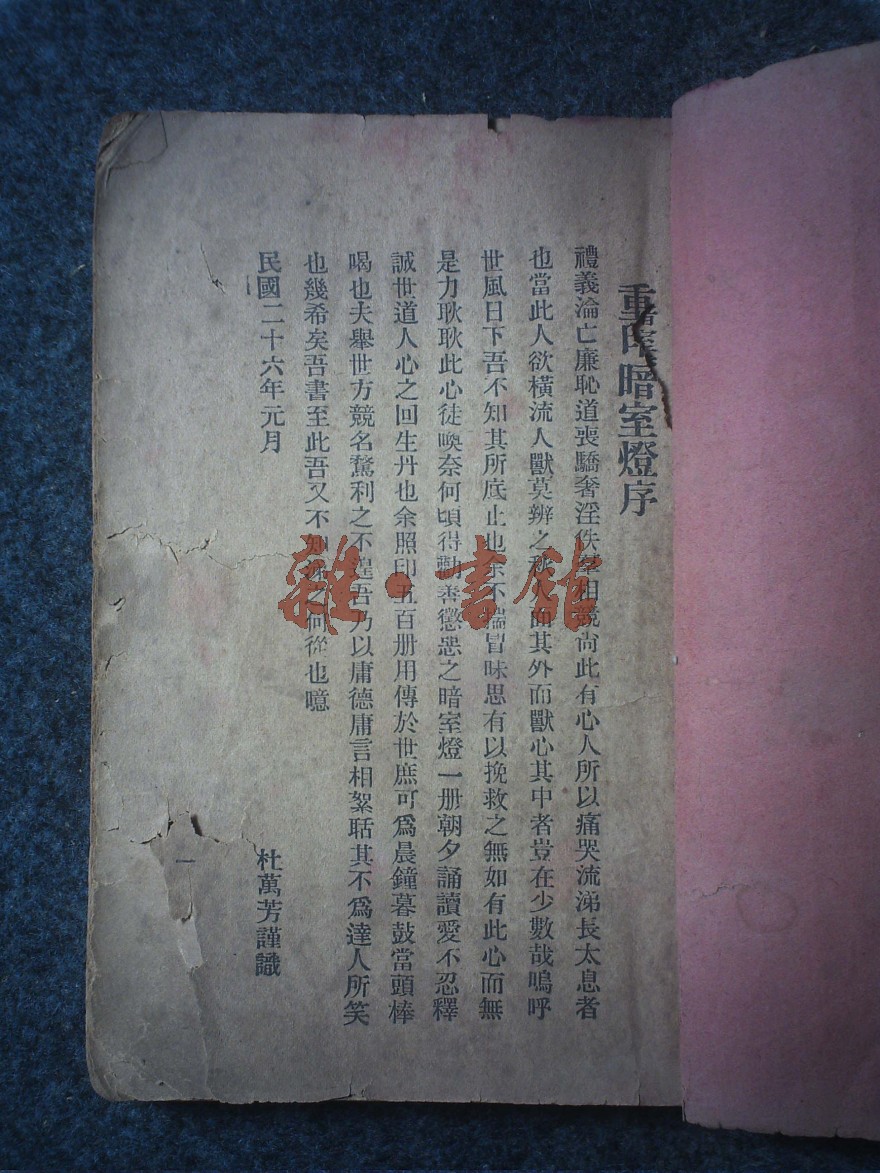 重印暗室燈序
禮義淪亡廉恥道喪驕奢淫佚羣相競尚此有心人所以痛哭流涕長太息者
也當此人欲橫流人獸莫辨之秋人面其外而獸心其中者豈在少數哉嗚呼
世風日下吾不知其所底止也余不揣冒昧思有以挽救之無如有此心而無
是力耿耿此心徒喚奈何頃得勸善懲惡之暗室燈一册朝夕誦讀愛不忍釋
誠世道人心之回生丹也余照印五百册用傳於世庶可爲晨鐘暮鼓當頭棒
喝也夫舉世方競名騖利之不遑吾乃以庸德庸言相絮聒其不爲達人所笑
也幾希矣吾書至此吾又不知涕之何從也噫
民國二十六年元月
杜萬芳謹識
一
雜·書館